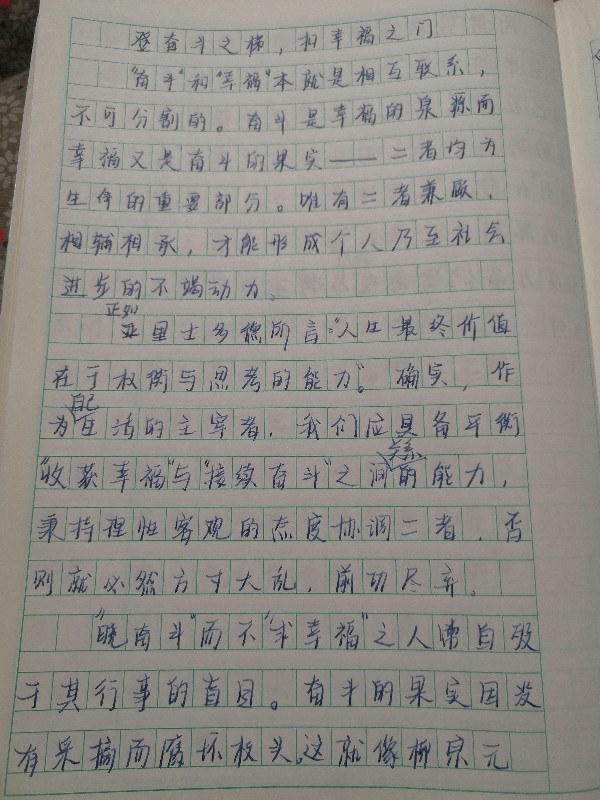 登奋斗之梯，扣幸福之门
“奋斗”和“幸福”本就是相互联系，
不可分割的。奋斗是幸福的泉源而
幸福又是奋斗的果实——二者均为
生命的重要部分。唯有二者兼顾，
相辅相承，才能形成个人乃至社会
进步的不竭动力。
正如
亚里士多德所言：“人生最终价值
在于权衡与思考的能力”。确实，作
自己
为生活的主宰者，我们应具备平衡
关系
“收获幸福”与“接续奋斗”之间的能力，
秉持理性客观的态度协调二者，否
则就必然方寸大乱，前功尽弃。
“晓奋斗”而不“求幸福”之人常自毁
于其行事的盲目。奋斗的果实因没
有采摘而腐坏枝头。这就像柳宗元